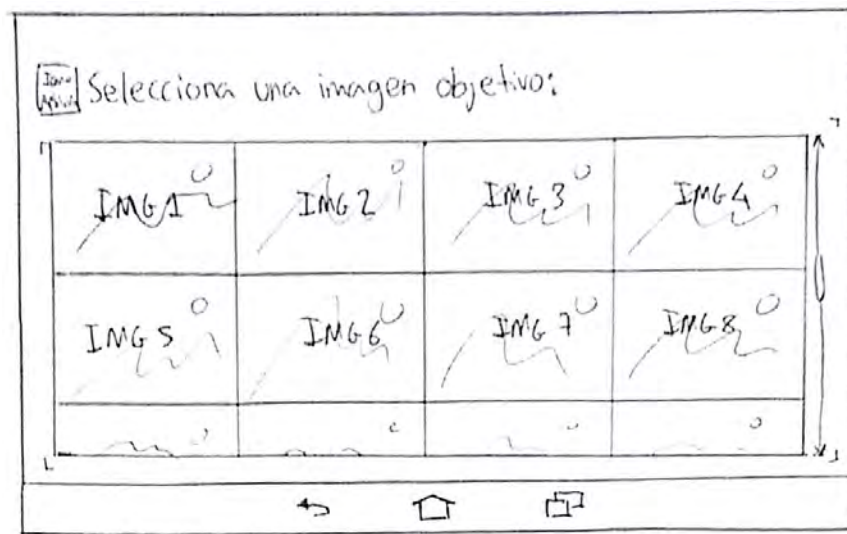 Icono
Selecciona una imagen objetivo:
IMG 1 IMG 2 IMG 3 IMG 4
IMG 5 IMG 6 IMG 7 IMG 8